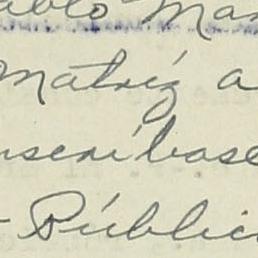 ablo Mar
Matríz a
nscríbase
Públic